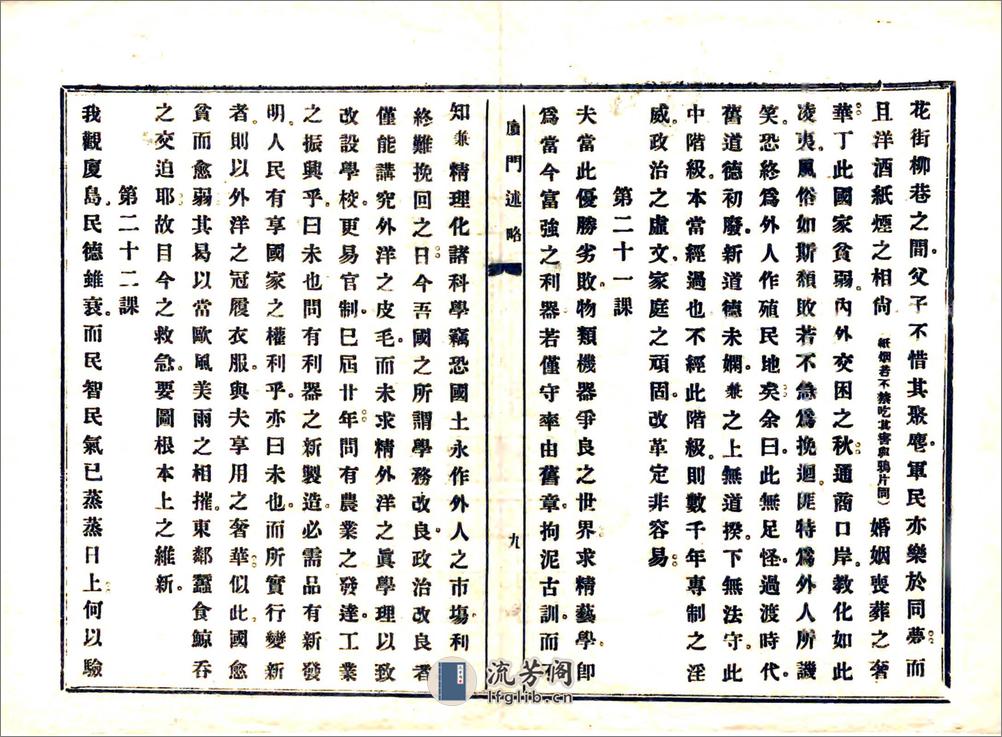 花街柳巷之間。父子不惜其聚麀。軍民亦樂於同夢。而
且洋酒紙煙之相尙(紙烟若不禁吃其害與鴉片同)婚姻喪葬之奢
華。丁此國家貧弱。內外交困之秋。通商口岸。敎化如此
凌夷。風俗如斯頹敗。若不急爲挽迴。匪特爲外人所譏
笑。恐終爲外人作殖民地矣。余曰。此無足怪。過渡時代。
舊道德初廢。新道德未嫻。兼之上無道揆。下無法守。此
中階級。本當經過也。不經此階級。則數千年專制之淫
威。政治之虛文。家庭之頑固。改革定非容易。
第二十一課
夫當此優勝劣敗。物類機器爭良之世界。求精藝學。卽
爲當今富強之利器。若僅守率由舊章。拘泥古訓。而不
廈門述略
九
知兼精理化諸科學。竊恐國土永作外人之市塲。利
終難挽回之日。今吾國之所謂學務改良。政治改良者。
僅能講究外洋之皮毛。而未求精外洋之眞學理。以致
改設學校。更易官制。已屆廿年。問有農業之發達。工業
之振興乎。曰未也。問有利器之新製造。必需品有新發
明。人民有享國家之權利乎。亦曰未也。而所實行變新
者。則以外洋之冠履衣服。與夫享用之奢華似此。國愈
貧而愈弱。其曷以當歐風美雨之相摧。東鄰蠶食鯨吞
之交迫耶。故目今之救急。要圖根本上之維新。
第二十二課
我觀廈島民德雖衰。而民智民氣已蒸蒸日上。何以驗
流芳阁
lfglib.com